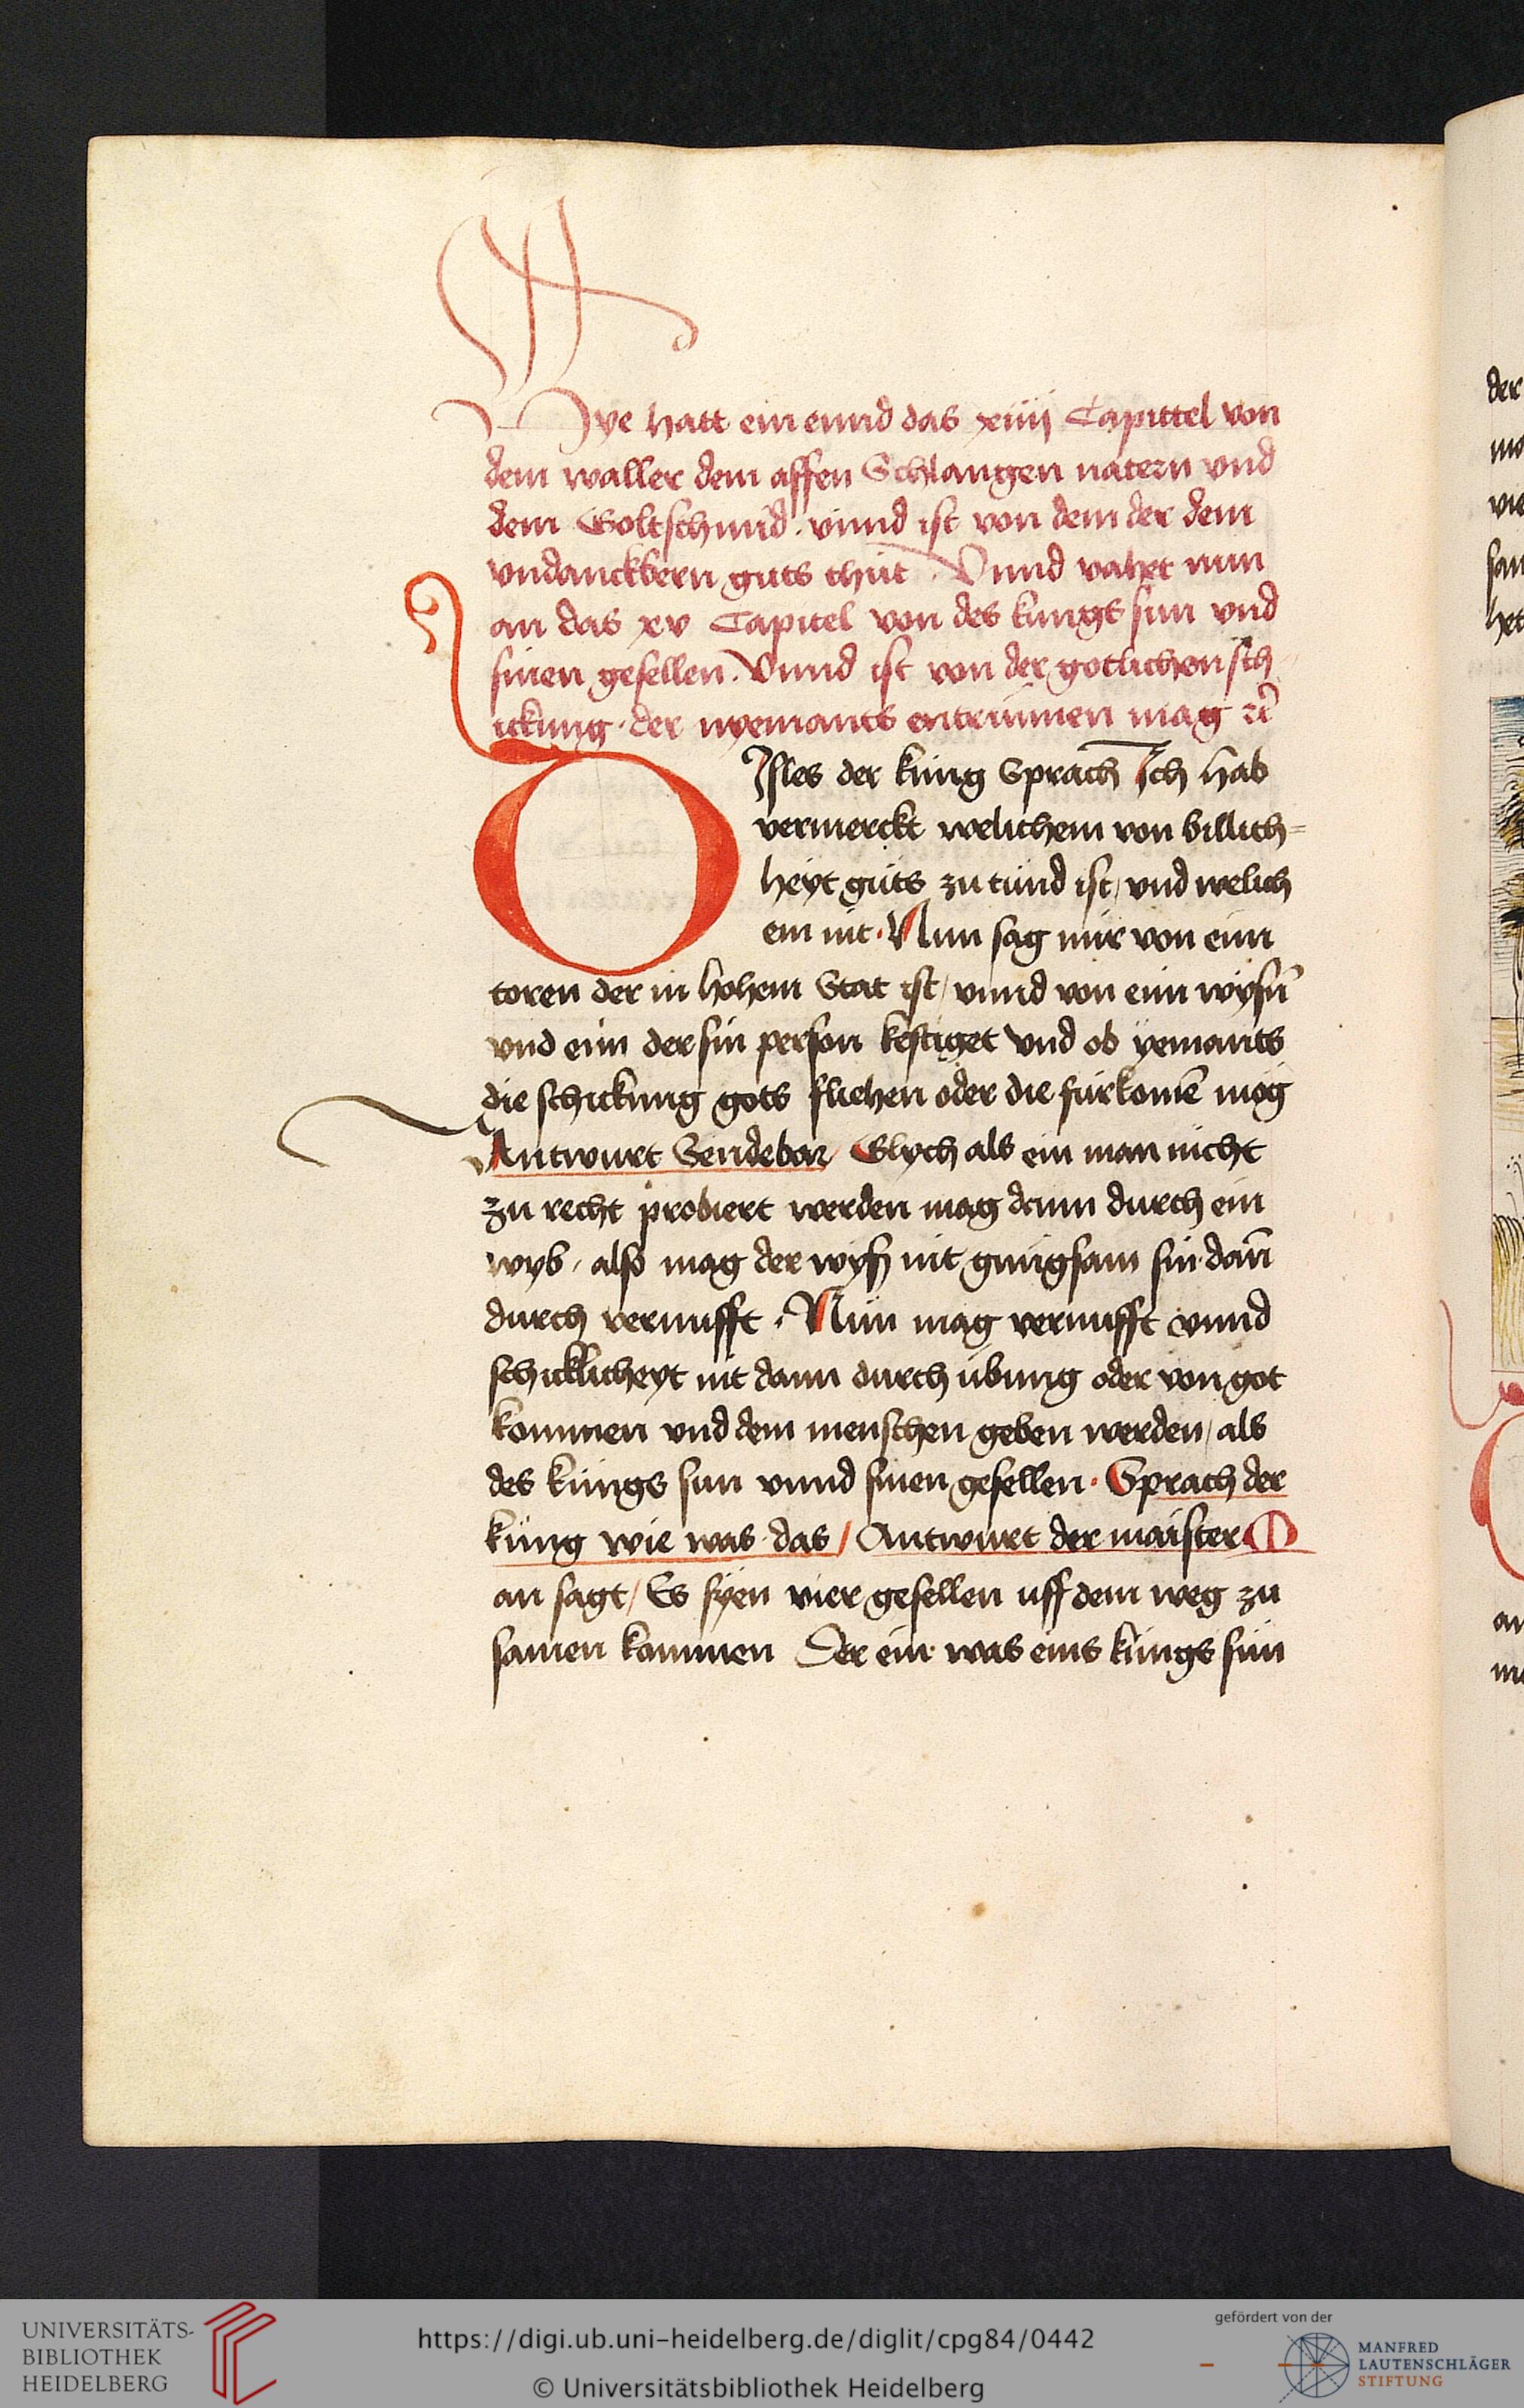 Hye hatt ein ennd das xiiij Capittel von
dem waller dem affen Schlangen natern vnd
dem Goltschmid · vnnd ist von dem der dem
vndanckbern guts thut · Vnnd vahet nun
an das xv Capitel von des kungs sun vnd
sinen gesellen · Vnnd ist von der gotlichen sch-
ickung · der nyemants entrinnen mag ꝛc̃
DIsles der kúng Sprach Ich hab
vermerckt welichem von billich=
heyt gůts zu tůnd ist / vnd welich
em nit · Nun sag mir von eim
toren der in hohem Stat ist / vnnd von eim wysñ
vnd eim der sin person kestiget vnd ob yemants
die schickung gots fliehen oder die fúrkomē mög
Antwurt Sendebar / Glych als ein man nicht
zu recht probiert werden mag dann durch ein
wyb / also mag der wyß nit gnúgsam sin dañ
durch vernufft · Nun mag vernufft vnnd
schicklicheyt nit dann durch úbung oder von got
kommen vnd dem menschen geben werden / als
des kúngs sun vnnd sinen gesellen · Sprach der
kúng wie was das / Antwurt der maister M
an sagt / Es syen vier gesellen uff dem weg zu
samen kommen Der ein was eins kúngs sun
der
vie
het
UNIVERSITÄTS-
BIBLIOTHEK
HEIDELBERG
https://digi.ub.uni-heidelberg.de/diglit/cpg84/0442
© Universitätsbibliothek Heidelberg
gefördert von der
MANFRED
LAUTENSCHLÄGER
STIFTUNG